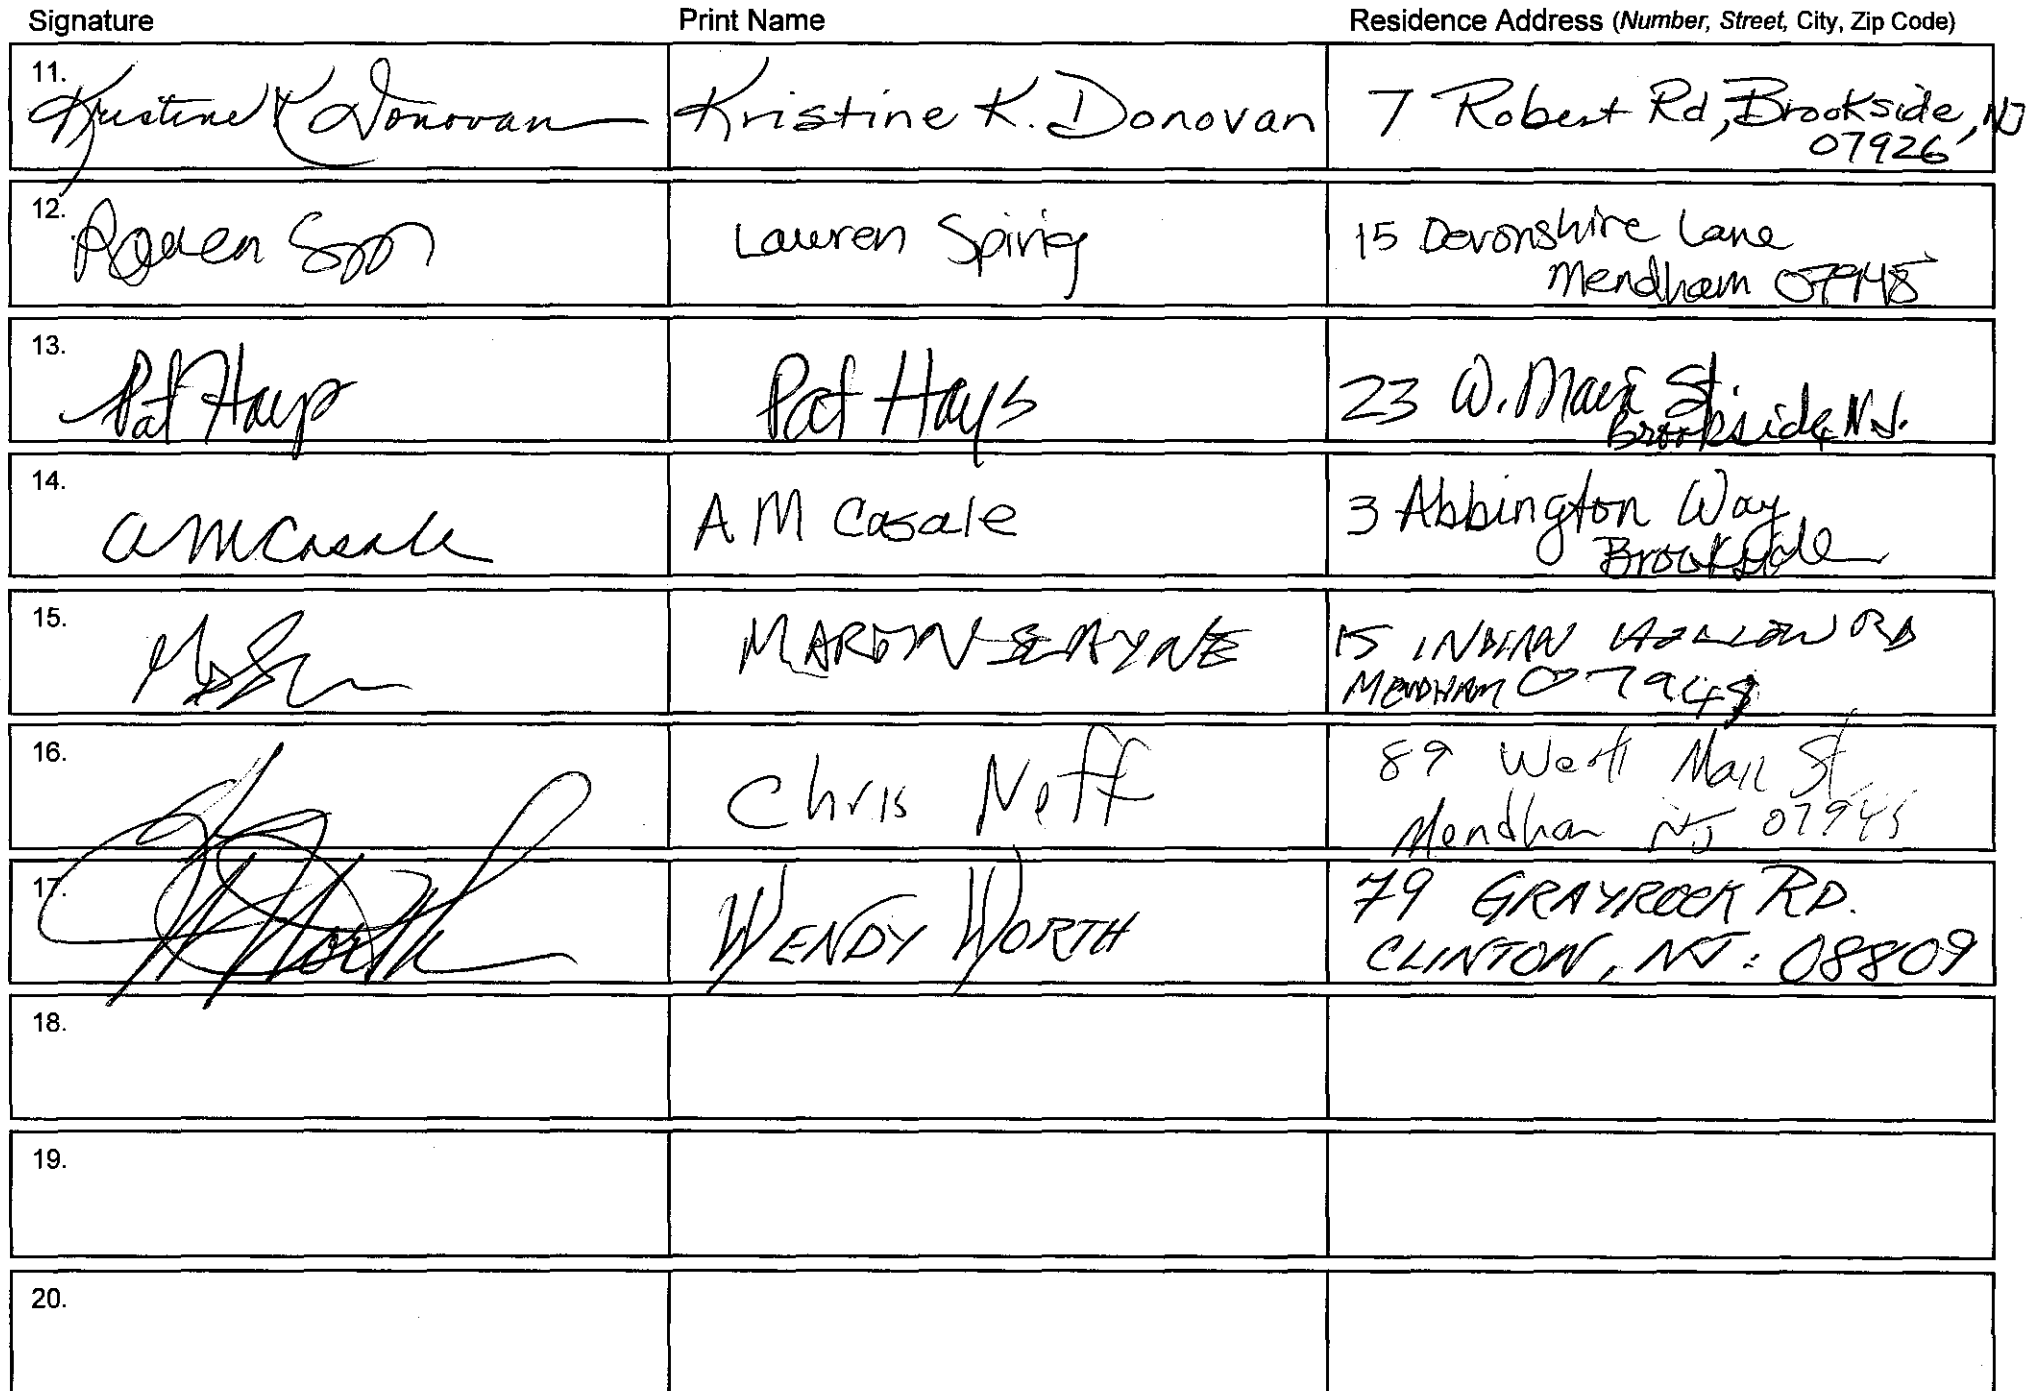 Signature Print Name Residence Address (Number, Street, City, Zip Code)
11. Kristine K Donovan Kristine K. Donovan 7 Robert Rd, Brookside, NJ
07926
12. Lauren Spirig 15 Devonshire Lane
Mendham 07945
13. Pat Hays Pat Hays 23 W. Main St.
Brookside N.J.
14. A M Casale A M Casale 3 Abbington Way
Brookside
15. 15 INDIAN HOLLOW RD
MENDHAM 07945
16. Chris Neff 89 West Main St
Mendham NJ 07945
17. W Worth WENDY WORTH 79 GRAYROCK RD.
CLINTON, NJ: 08809
18.
19.
20.